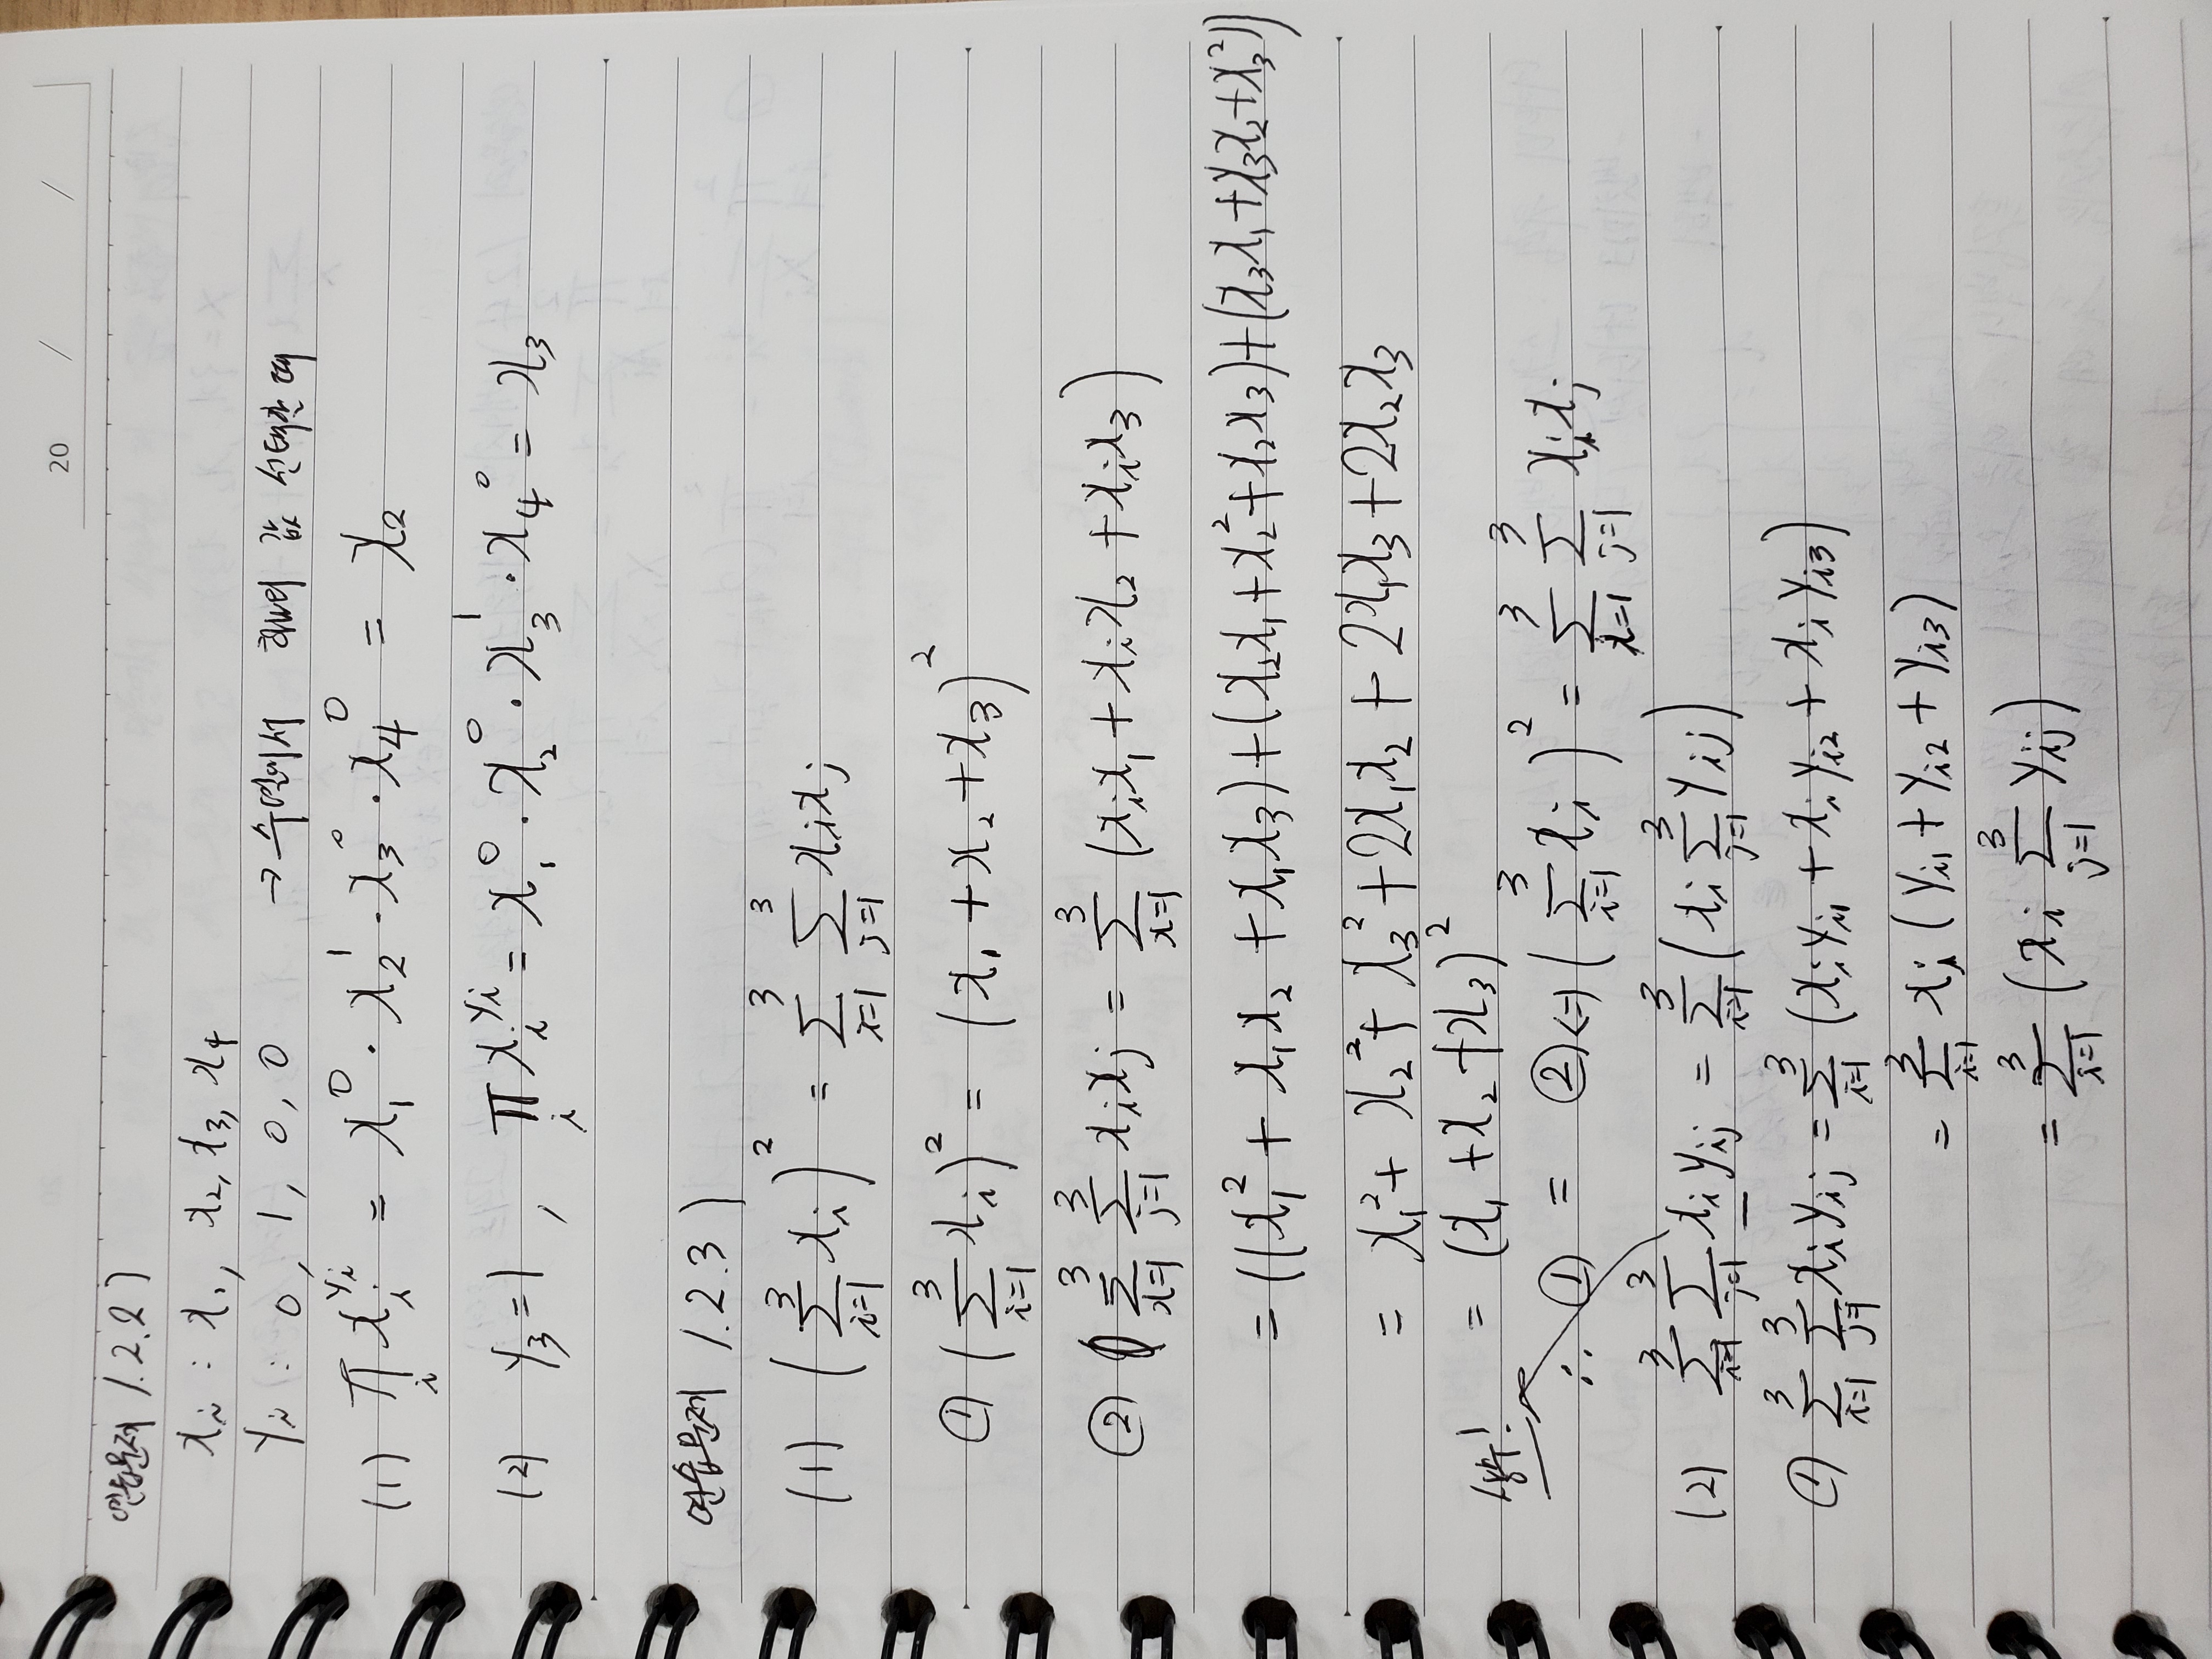 20 / /
연습문제 1.2.2)
xᵢ : x₁, x₂, x₃, x₄
yᵢ : 0, 1, 0, 0 → 수열에서 하나의 값 선택할 때
(1) ∏ᵢ xᵢ^yᵢ = x₁⁰ · x₂¹ · x₃⁰ · x₄⁰ = x₂
(2) y₃=1, ∏ᵢ xᵢ^yᵢ = x₁⁰ · x₂⁰ · x₃¹ · x₄⁰ = x₃
연습문제 1.2.3)
(1) (∑_{i=1}^{3} xᵢ)² = ∑_{i=1}^{3} ∑_{j=1}^{3} xᵢxⱼ
① (∑_{i=1}^{3} xᵢ)² = (x₁ + x₂ + x₃)²
② ∑_{i=1}^{3} ∑_{j=1}^{3} xᵢxⱼ = ∑_{i=1}^{3} (xᵢx₁ + xᵢx₂ + xᵢx₃)
= ((x₁² + x₁x₂ + x₁x₃) + (x₂x₁ + x₂² + x₂x₃) + (x₃x₁ + x₃x₂ + x₃²))
= x₁² + x₂² + x₃² + 2x₁x₂ + 2x₁x₃ + 2x₂x₃
= (x₁ + x₂ + x₃)²
상수!
∴ ① = ② ⇔ (∑_{i=1}^{3} xᵢ)² = ∑_{i=1}^{3} ∑_{j=1}^{3} xᵢxⱼ
(2) ∑_{i=1}^{3} ∑_{j=1}^{3} xᵢ yᵢⱼ = ∑_{i=1}^{3} (xᵢ ∑_{j=1}^{3} yᵢⱼ)
① ∑_{i=1}^{3} ∑_{j=1}^{3} xᵢ yᵢⱼ = ∑_{i=1}^{3} (xᵢ yᵢ₁ + xᵢ yᵢ₂ + xᵢ yᵢ₃)
= ∑_{i=1}^{3} xᵢ (yᵢ₁ + yᵢ₂ + yᵢ₃)
= ∑_{i=1}^{3} (xᵢ ∑_{j=1}^{3} yᵢⱼ)